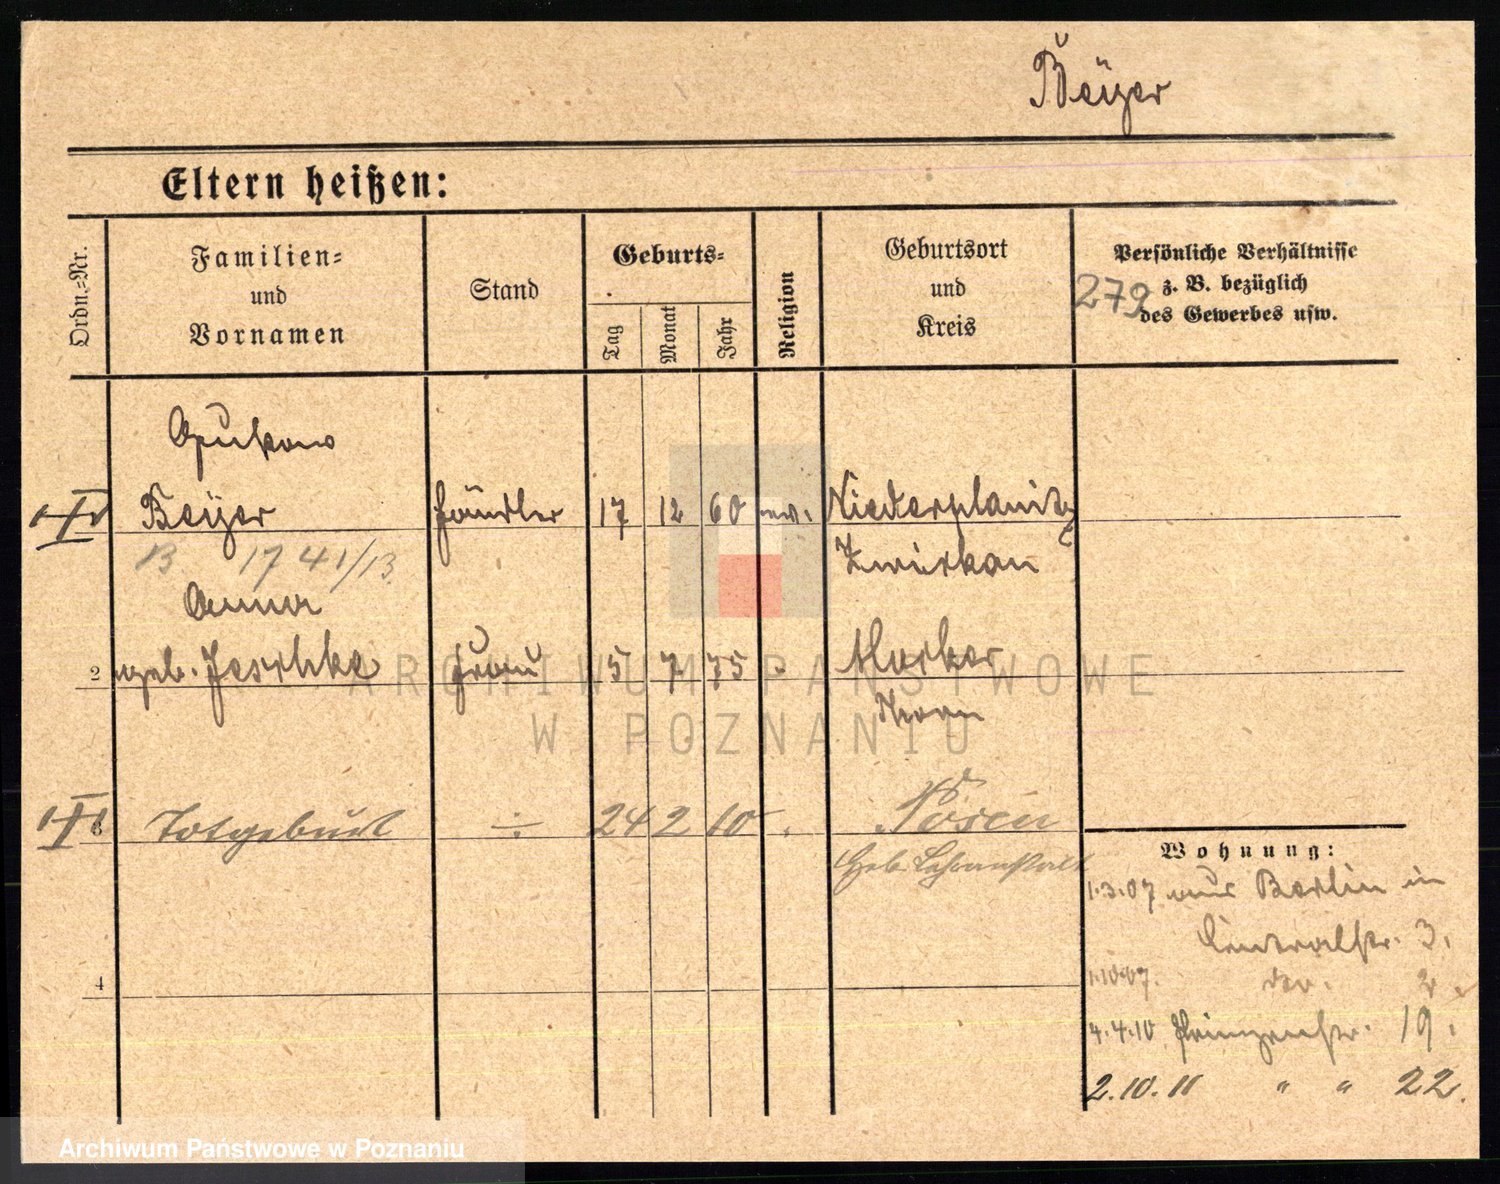 Beyer
Eltern heißen:
Ordn.-Nr.
Familien-
und
Vornamen
Stand
Geburts-
Tag
Monat
Jahr
Religion
Geburtsort
und
Kreis
Persönliche Verhältnisse
z. B. bezüglich
des Gewerbes usw.
279
Gustav
Beyer Händler 17 12 60 ev. Niederplanitz
13 1741/13. Zwickau
Anna
2 geb. Jeschke Frau 5 7 75 Mocker
Thorn
Totgeburt ÷ 24 2 10 Posen
Heb. Lehranstalt
4
Wohnung:
1.3.07 aus Berlin in
Centralstr. 3.
1.10.07. 2.
4.4.10 Prinzenstr. 19.
2.10.11 " " 22.
ARCHIWUM PAŃSTWOWE
W POZNANIU
Archiwum Państwowe w Poznaniu